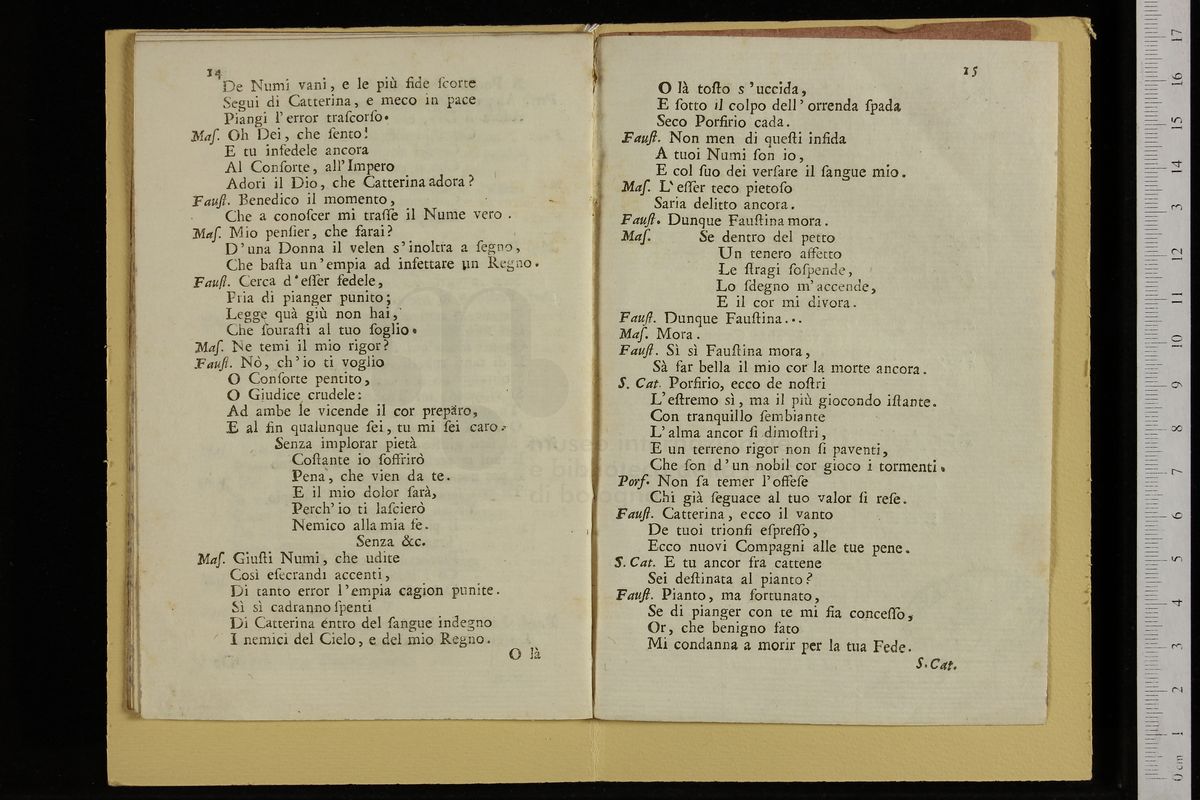 14
De Numi vani, e le più fide ſcorte
Segui di Catterina, e meco in pace
Piangi l'error traſcorſo.
Maſ. Oh Dei, che ſento!
E tu infedele ancora
Al Conſorte, all'Impero
Adori il Dio, che Catterina adora?
Fauſt. Benedico il momento,
Che a conoſcer mi traſſe il Nume vero.
Maſ. Mio penſier, che farai?
D'una Donna il velen s'inoltra a ſegno,
Che baſta un'empia ad infettare un Regno.
Fauſt. Cerca d'eſſer fedele,
Pria di pianger punito;
Legge quà giù non hai,
Che ſouraſti al tuo ſoglio.
Maſ. Ne temi il mio rigor?
Fauſt. Nò, ch'io ti voglio
O Conſorte pentito,
O Giudice crudele:
Ad ambe le vicende il cor preparo,
E al fin qualunque ſei, tu mi ſei caro.
Senza implorar pietà
Coſtante io ſoffrirò
Pena, che vien da te.
E il mio dolor ſarà,
Perch'io ti laſcierò
Nemico alla mia fe.
Senza &c.
Maſ. Giuſti Numi, che udite
Così eſecrandi accenti,
Di tanto error l'empia cagion punite.
Sì sì cadranno ſpenti
Di Catterina entro del ſangue indegno
I nemici del Cielo, e del mio Regno.
O là
15
O là toſto s'uccida,
E ſotto il colpo dell'orrenda ſpada
Seco Porfirio cada.
Fauſt. Non men di queſti infida
A tuoi Numi ſon io,
E col ſuo dei verſare il ſangue mio.
Maſ. L'eſſer teco pietoſo
Saria delitto ancora.
Fauſt. Dunque Fauſtina mora.
Maſ. Se dentro del petto
Un tenero affetto
Le ſtragi ſoſpende,
Lo ſdegno m'accende,
E il cor mi divora.
Fauſt. Dunque Fauſtina...
Maſ. Mora.
Fauſt. Sì sì Fauſtina mora,
Sà far bella il mio cor la morte ancora.
S. Cat. Porfirio, ecco de noſtri
L'eſtremo sì, ma il più giocondo iſtante.
Con tranquillo ſembiante
L'alma ancor ſi dimoſtri,
E un terreno rigor non ſi paventi,
Che ſon d'un nobil cor gioco i tormenti.
Porf. Non ſa temer l'offeſe
Chi già ſeguace al tuo valor ſi reſe.
Fauſt. Catterina, ecco il vanto
De tuoi trionfi eſpreſſo,
Ecco nuovi Compagni alle tue pene.
S. Cat. E tu ancor fra cattene
Sei deſtinata al pianto?
Fauſt. Pianto, ma fortunato,
Se di pianger con te mi fia conceſſo,
Or, che benigno fato
Mi condanna a morir per la tua Fede.
S. Cat.
0 cm 1 2 3 4 5 6 7 8 9 10 11 12 13 14 15 16 17